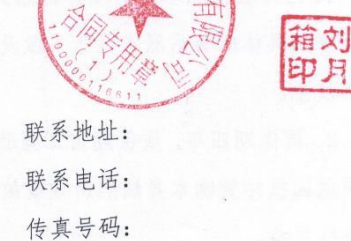 有限公司
合同专用章
（1）
1100000116611
刘月
箱印
联系地址：
联系电话：
传真号码：